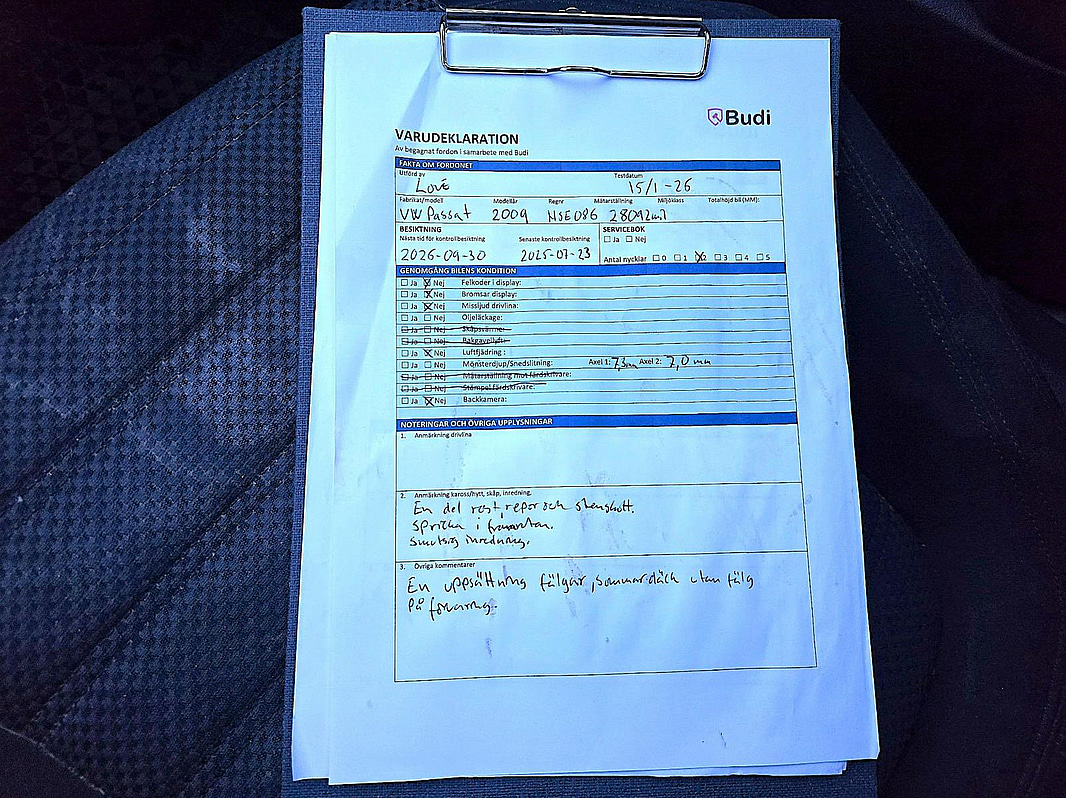 Budi
VARUDEKLARATION
Av begagnat fordon i samarbete med Budi
FAKTA OM FORDONET
Utförd av Testdatum
Love 15/1-26
Fabrikat/modell Modellår Regnr Mätarställning Miljöklass Totalhöjd bil (MM):
VW Passat 2009 NSE086 28092mil
BESIKTNING SERVICEBOK
Nästa tid för kontrollbesiktning Senaste kontrollbesiktning Ja Nej
2026-09-30 2025-07-23 Antal nycklar 0 1 2 3 4 5
GENOMGÅNG BILENS KONDITION
Ja Nej Felkoder i display:
Ja Nej Bromsar display:
Ja Nej Missljud drivlina:
Ja Nej Oljeläckage:
Ja Nej Skåpsvärme:
Ja Nej Bakgavellyft:
Ja Nej Luftfjädring :
Ja Nej Mönsterdjup/Snedslitning: Axel 1: 7,3mm Axel 2: 7,0 mm
Ja Nej Mätarställning mot färdskrivare:
Ja Nej Stämpel färdskrivare:
Ja Nej Backkamera:
NOTERINGAR OCH ÖVRIGA UPPLYSNINGAR
1. Anmärkning drivlina
2. Anmärkning kaross/hytt, skåp, inredning.
En del rost, repor och stenskott.
Spricka i framrutan.
Smutsig inredning.
3. Övriga kommentarer
En uppsättning fälgar, sommardäck utan fälg
på förvaring.